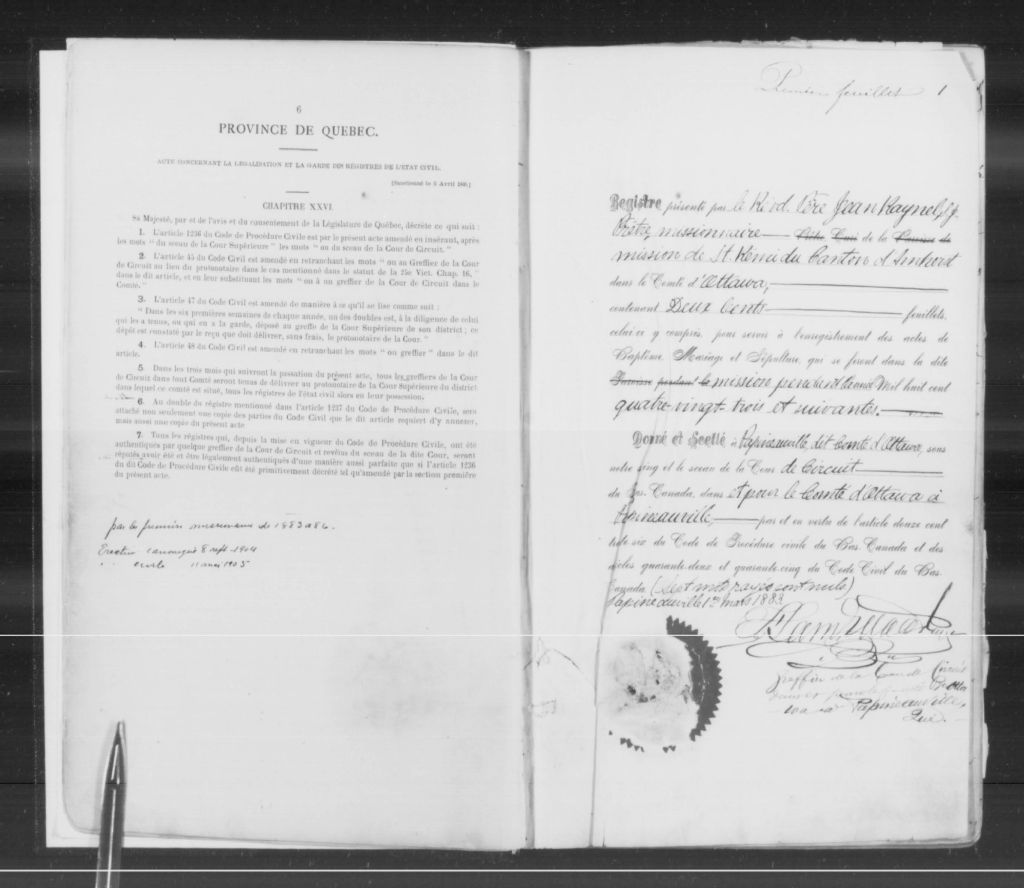 6
PROVINCE DE QUEBEC.
ACTE CONCERNANT LA LEGALISATION ET LA GARDE DES RÉGISTRES DE L'ETAT CIVIL.
[Sanctionné le 5 Avril
CHAPITRE XXVI.
SA Majesté, par et de l'avis et du consentement de la Législature de Québec, décrète ce qui suit :
1. L'article 1236 du Code de Procédure Civile est par le présent acte amendé en insérant, après
les mots " du sceau de la Cour Supérieure " les mots " ou du sceau de la Cour de Circuit. "
2. L'article 45 du Code Civil est amendé en retranchant les mots " ou au Greffier de la Cour
de Circuit au lieu du protonotaire dans le cas mentionné dans le statut de la 25e Vict. Chap. 16, "
dans le dit article, et en leur substituant les mots " ou à un greffier de la Cour de Circuit dans le
Comté. "
3. L'article 47 du Code Civil est amendé de manière à ce qu'il se lise comme suit :
" Dans les six premières semaines de chaque année, un des doubles est, à la diligence de celui
qui les a tenus, ou qui en a la garde, déposé au greffe de la Cour Supérieure de son district ; ce
dépôt est constaté par le reçu que doit délivrer, sans frais, le protonotaire de la Cour. "
4. L'article 48 du Code Civil est amendé en retranchant les mots " ou greffier " dans le dit
article.
5. Dans les trois mois qui suivront la passation du présent acte, tous les greffiers de la Cour
de Circuit dans tout Comté seront tenus de délivrer au protonotaire de la Cour Supérieure du district
dans lequel ce comté est situé, tous les régistres de l'état civil alors en leur possession.
6. Au double du régistre mentionné dans l'article 1237 du Code de Procédure Civile, sera
attaché non seulement une copie des parties du Code Civil que le dit article requiert d'y annexer,
mais aussi une copie du présent acte
7. Tous les régistres qui, depuis la mise en vigueur du Code de Procédure Civile, ont été
authentiqués par quelque greffier de la Cour de Circuit et revêtus du sceau de la dite Cour, seront
réputés avoir été et être légalement authentiqués d'une manière aussi parfaite que si l'article 1236
du dit Code de Procédure Civile eût été primitivement décrété tel qu'amendé par la section première
du présent acte.
par le premier missionnaire de 1883 à 86.
Erection canonique 8 sept. 1904
" civile 1905
Premier feuillet 1
Registre présenté par le Rév'd Père Jean Raynel
Prêtre, missionnaire Curé de la Paroisse de
mission de St Rémi du Canton d'Amherst
dans le Comté d'Ottawa,
contenant Deux Cents feuillets,
celui-ci y compris, pour servir à l'enregistrement des actes de
Baptême, Mariage et Sépulture, qui se feront dans la dite
Paroisse pendant la mission pendant l'année Mil huit cent
quatre-vingt-trois et suivantes.
Donné et Scellé à Papineauville, dit Comté d'Ottawa, sous
notre seing et le sceau de la Cour de Circuit
du Bas-Canada, dans et pour le Comté d'Ottawa à
Papineauville, par et en vertu de l'article douze cent
trente six du Code de Procédure civile du Bas-Canada et des
articles quarante-deux et quarante-cinq du Code Civil du Bas-
Canada (Sept mots rayés sont nuls)
Papineauville 1er mars 1883
greffier de la Cour de Circuit
Papineauville,
Qué.